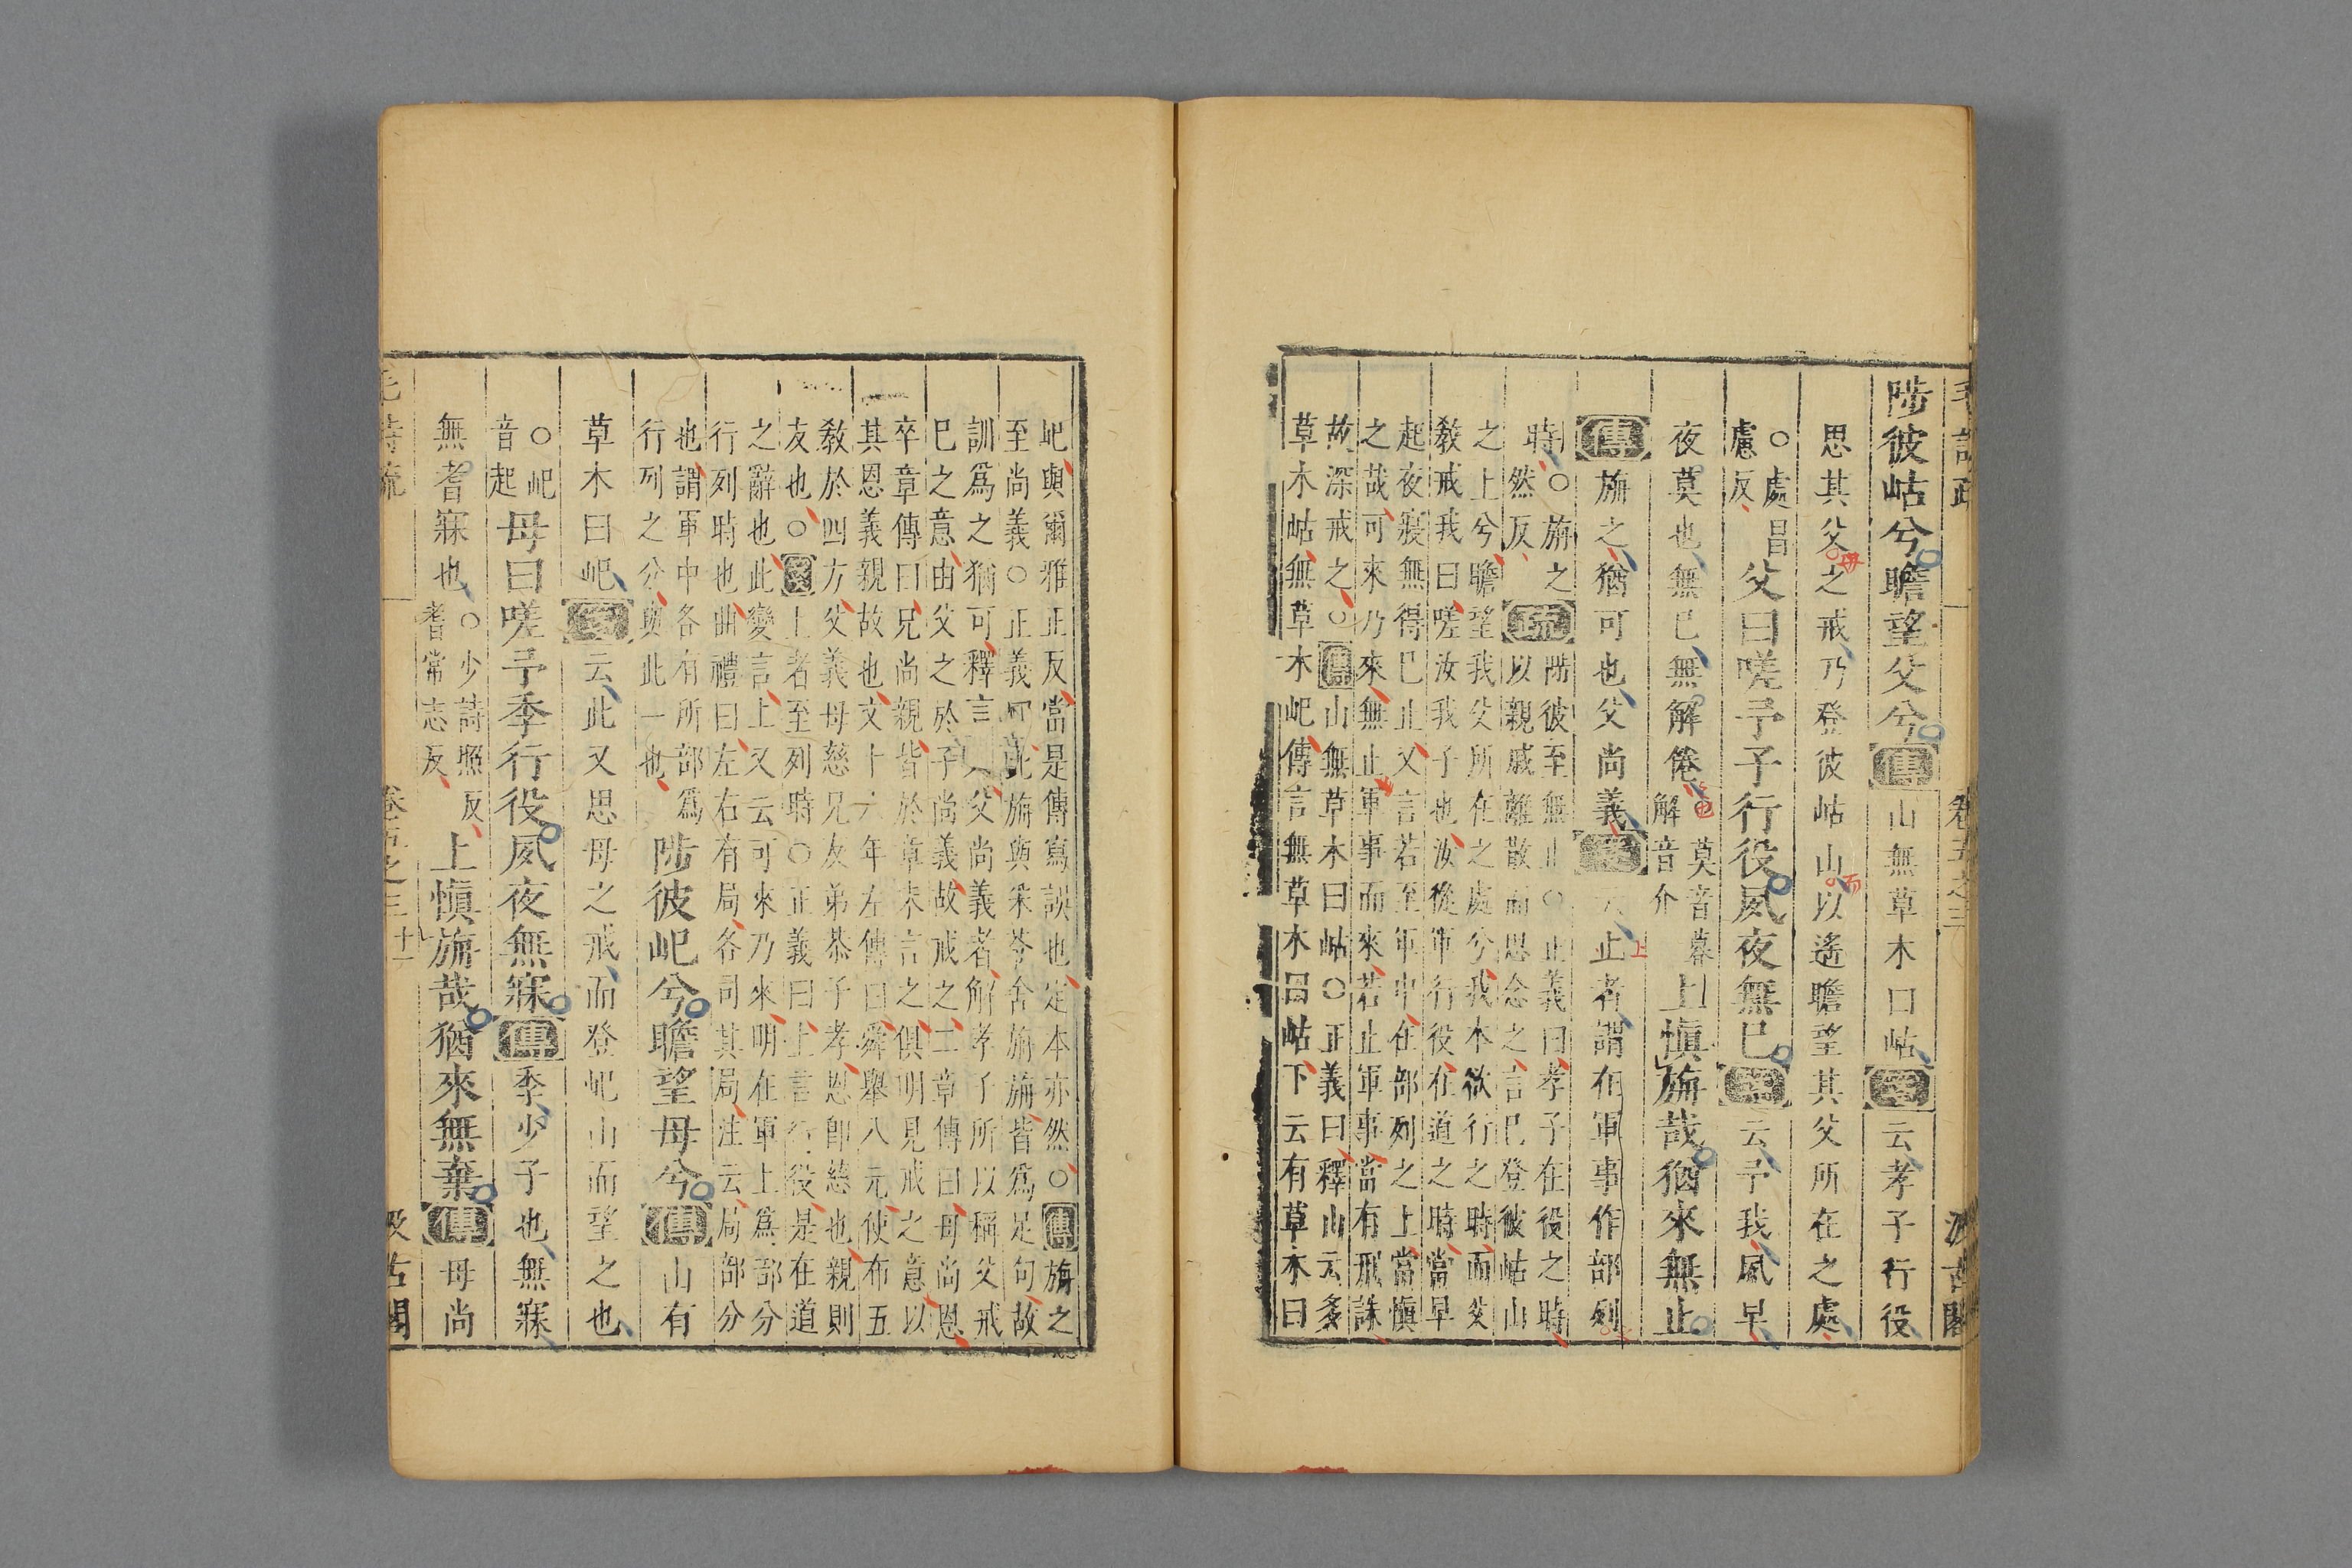 陟彼岵兮瞻望父兮傳山無草木曰岵箋云孝子行役
思其父之戒乃登彼岵山以遙瞻望其父所在之處
○處昌
慮反
父曰嗟予子行役夙夜無已箋云予我夙早
夜莫也無已無解倦
莫音暮
解音介
上愼旃哉猶來無止
傳旃之猶可也父尚義箋云止者謂在軍事作部列
時
○旃之
然反
疏
陟彼至無止○正義曰孝子在役之時
以親戚離散而思念之言已登彼岵山
之上兮瞻望我父所在之處兮我本欲行之時而父
敎戒我曰嗟汝我子也汝從軍行役在道之時當早
起夜寢無得已止又言若至軍中在部列之上當愼
之哉可來乃來無止軍事而來若止軍事當有刑誅
故深戒之○傳山無草木曰岵○正義曰釋山云多
草木岵無草木屺傳言無草木曰岵下云有草木曰
屺與爾雅正反當是傳寫誤也定本亦然○傳旃之
至尚義○正義曰此旃與采苓舍旃旃皆爲足句故
訓爲之猶可釋言文父尚義者解孝子所以稱父戒
已之意由父之於子尚義故戒之二章傳曰母尚恩
卒章傳曰兄尚親皆於章末言之俱明見戒之意以
其恩義親故也文十八年左傳曰舜舉八元使布五
敎於四方父義母慈兄友弟恭子孝恩卽慈也親則
友也○箋上者至列時○正義曰上言行役是在道
之辭也此變言上又云可來乃來明在軍上爲部分
行列時也曲禮曰左右有局各司其局注云局部分
也謂軍中各有所部爲
行列之分與此一也
陟彼屺兮瞻望母兮傳山有
草木曰屺箋云此又思母之戒而登屺山而望之也
○屺
音起
母曰嗟予季行役夙夜無寐傳季少子也無寐
無耆寐也
○少詩照反
耆常志反
上愼旃哉猶來無棄傳母尚
毛詩疏
卷五之三
十一
汲古閣